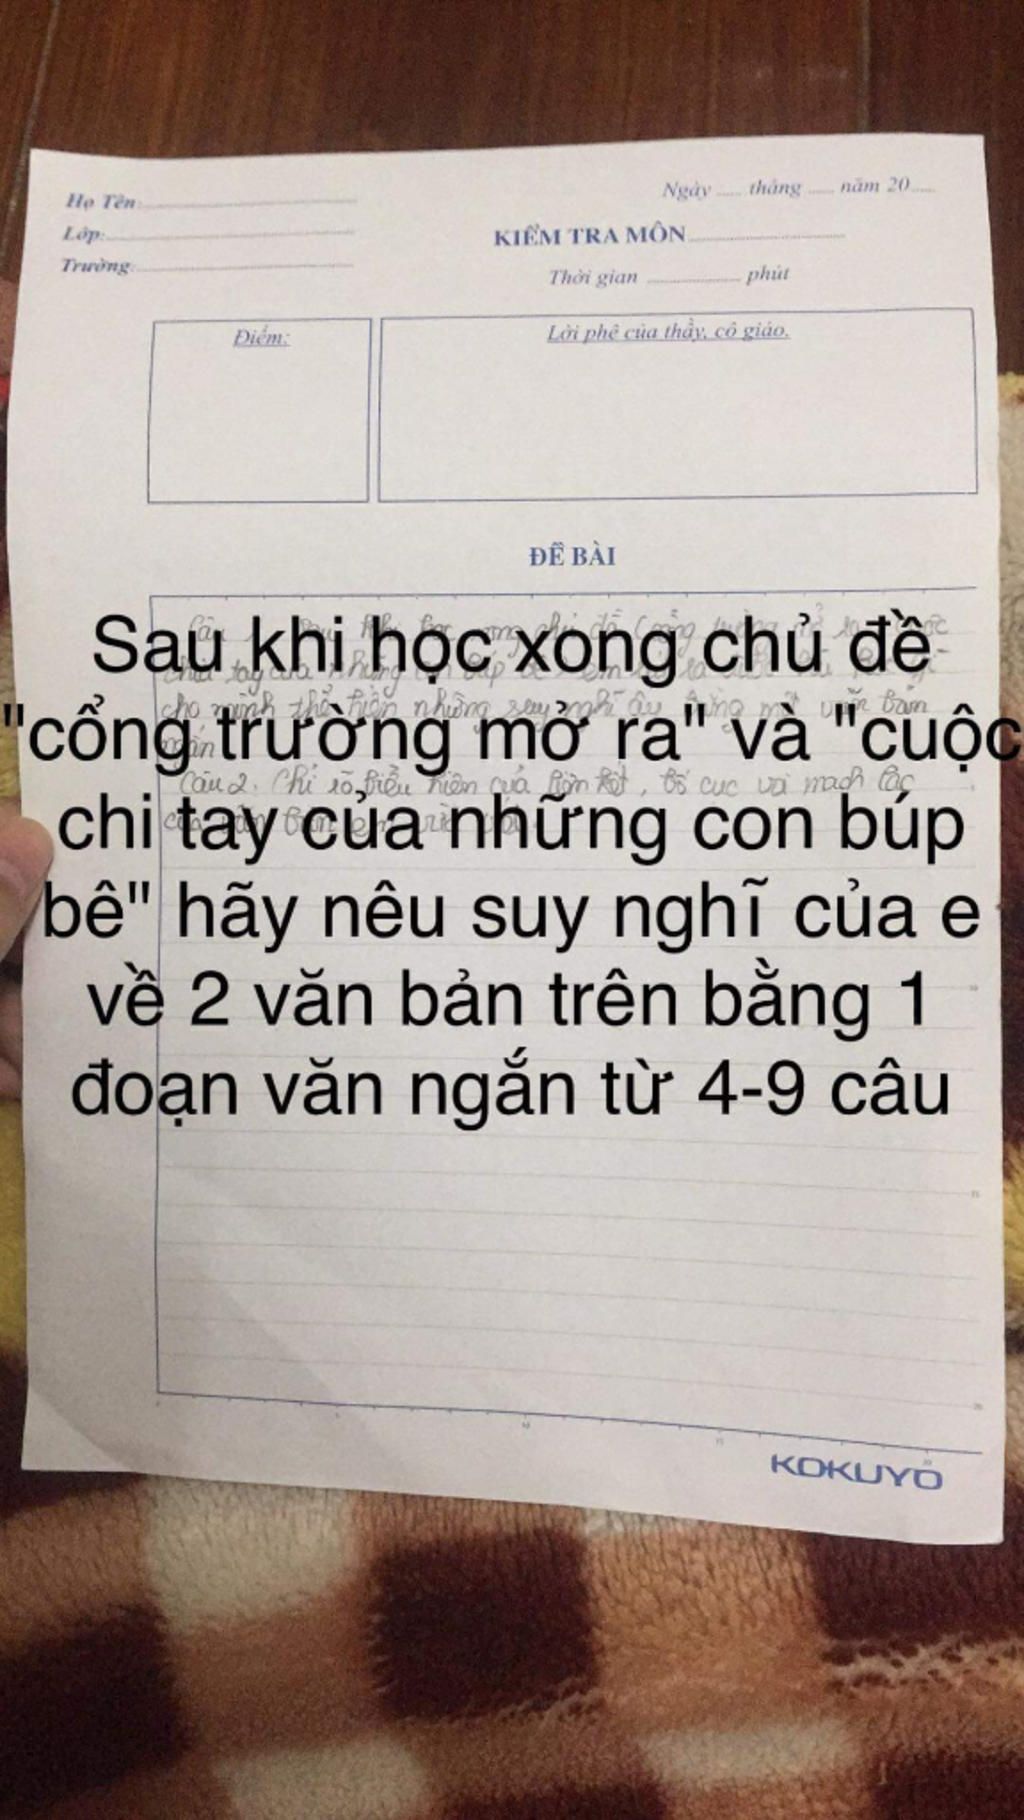 Họ Tên:
Ngày ..... tháng ..... năm 20.....
Lớp:
KIỂM TRA MÔN
Trường:
Thời gian ..................... phút
Điểm:
Lời phê của thầy, cô giáo.
ĐỀ BÀI
Sau khi học xong chủ đề
"cổng trường mở ra" và "cuộc
chi tay của những con búp
bê" hãy nêu suy nghĩ của e
về 2 văn bản trên bằng 1
đoạn văn ngắn từ 4-9 câu
cho mình thể hiện những suy nghĩ ấy bằng một văn bản
Câu 2. Chỉ rõ biểu hiện của liên kết, bố cục và mạch lạc
KOKUYO